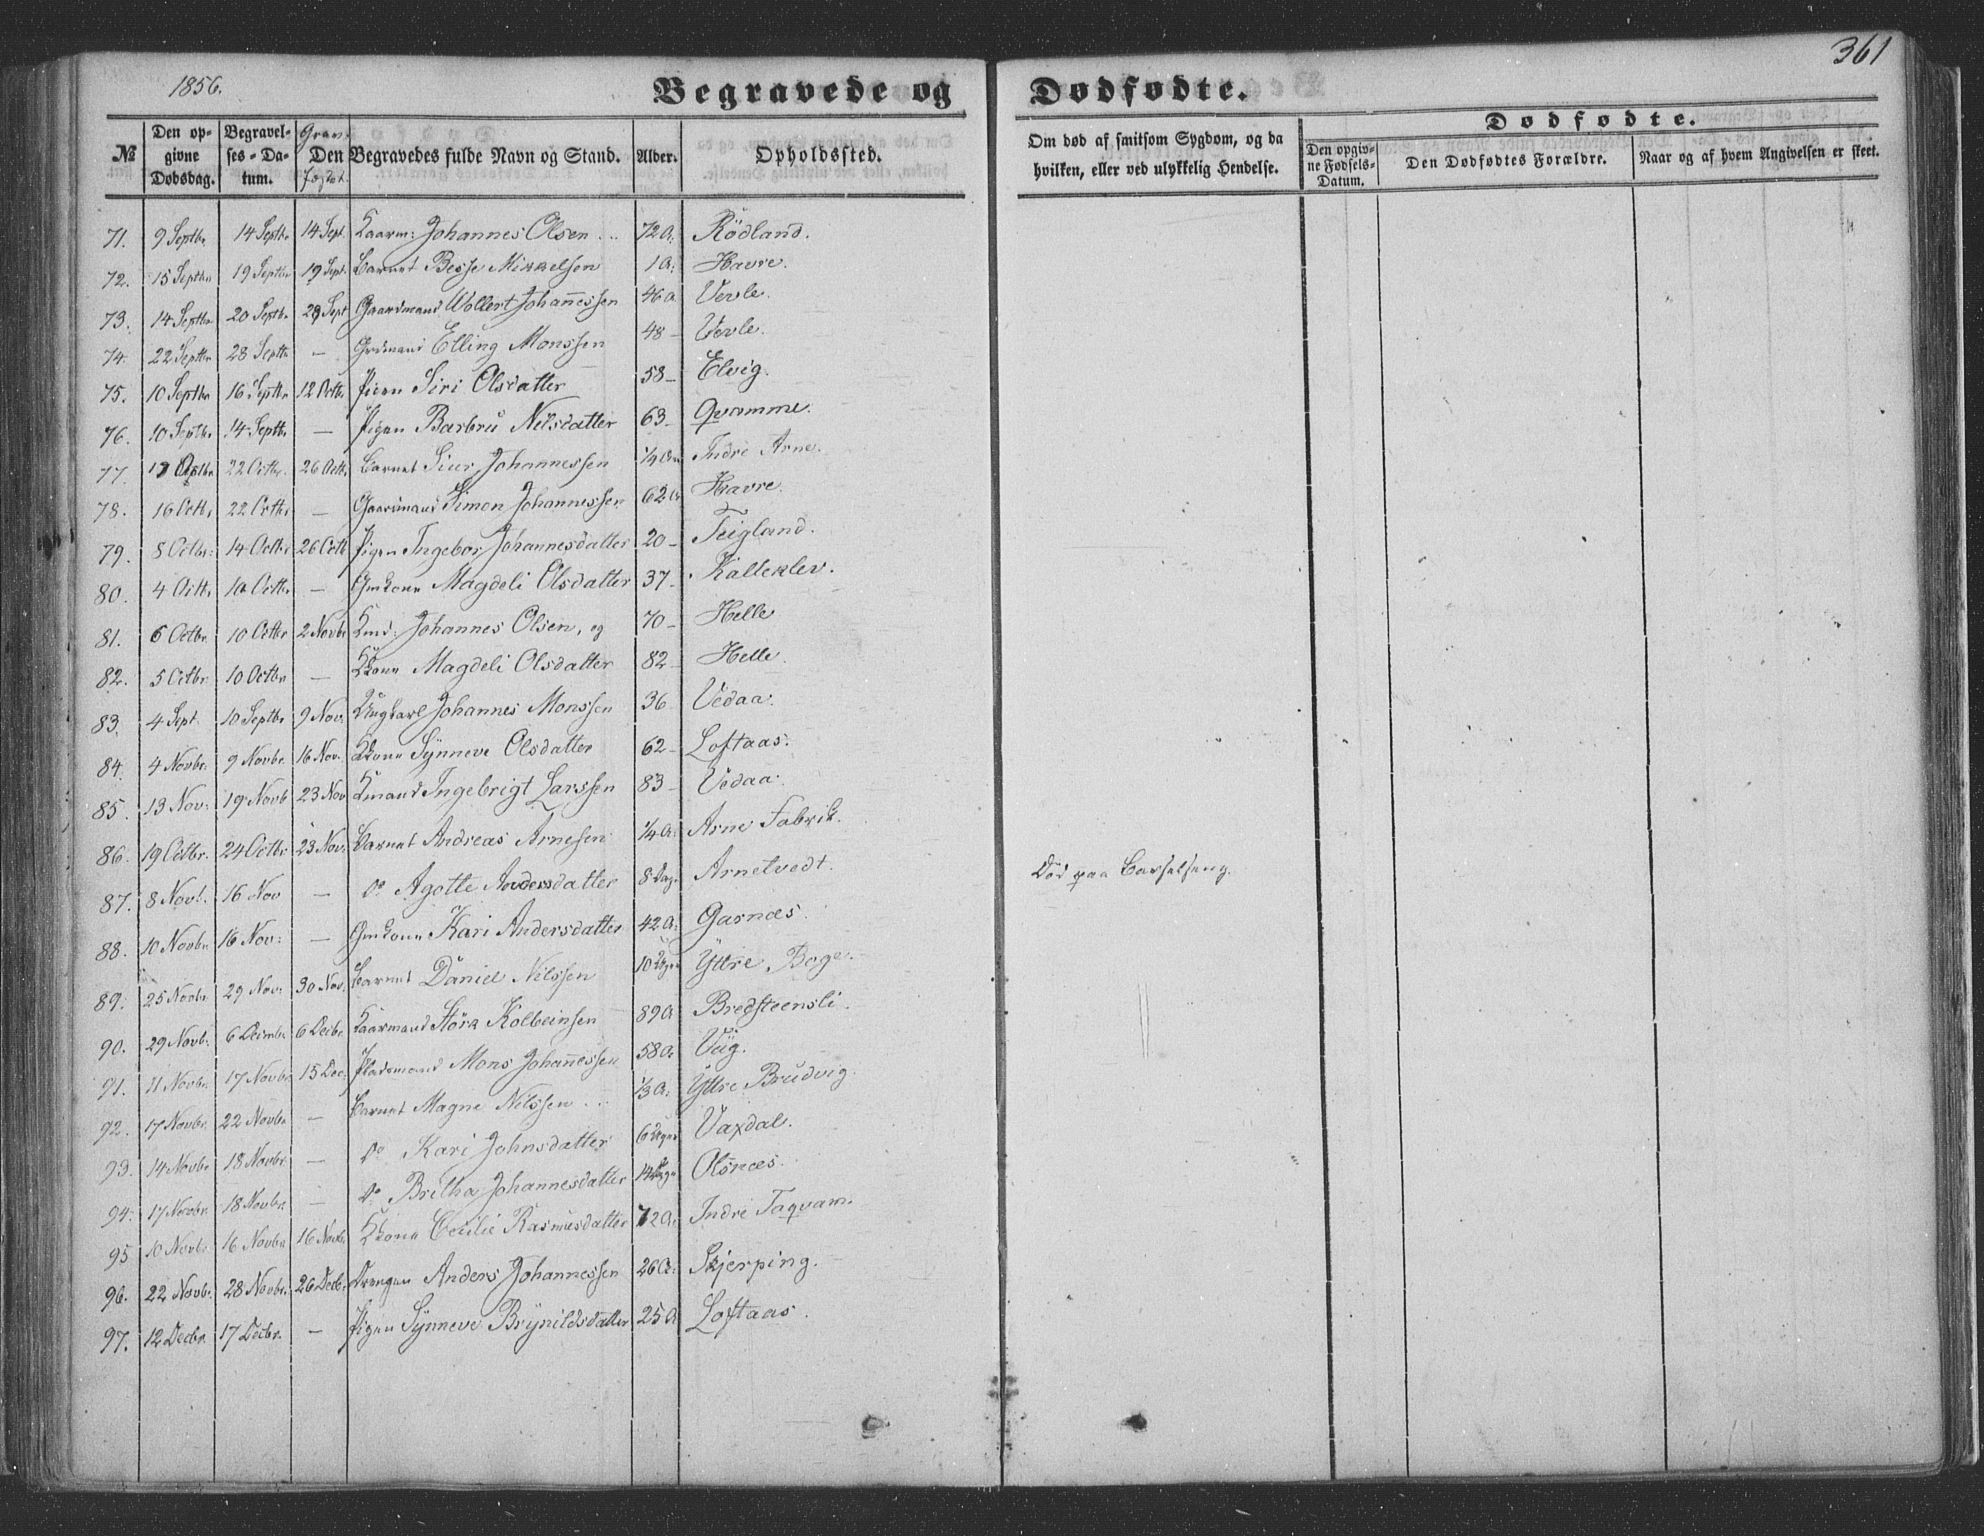 1856.
361
Begravede og Dødfødte.
№ | Den opgivne Dødsdag. | Begravelses-Datum. | Gran- | Den Begravedes fulde Navn og Stand. | Alder. | Opholdssted. | Om død af smitsom Sygdom, og da hvilken, eller ved ulykkelig Hendelse. | Dødfødte. | Den opgivne Fødsels-Datum. | Den Dødfødtes Forældre. | Naar og af hvem Angivelsen er skeet.
71. 9 Septbr 14 Septbr 14 Sept. Kaarm: Johannes Olsen 72 A: Rödland.
72. 15 Septbr 19 Septbr 19 Sept. Barnet Besse Mikkelsen 1 A: Havre.
73. 14 Septbr 20 Septbr Sept Gaardmand Wollert Johannessen 46 A Vevle.
74. 22 Septbr 28 Septbr — Grdmand Elling Monssen 48 — Vevle.
75. 10 Septbr 16 Septbr 12 Octbr. Pigen Siri Olsdatter 58 — Elvig.
76. 10 Septbr 14 Septbr. — Pigen Barbru Nilsdatter 63. Qvamme.
77. 22 Octbr. 26 Octb. Barnet Siur Johannessen Indre Arne.
78. 16 Octb. 22 Octbr — Gaardmand Simon Johannessen 62 A Havre.
79. 8 Octbr: 14 Octbr 26 Octb Pigen Ingebor Johannesdatter 20 — Teigland.
80. 4 Octb. 10 Octbr — Gmkone Magdeli Olsdatter 37 — Kalleklev.
81. 6 Octbr. 10 Octbr 2 Novbr Kmd: Johannes Olsen, og 70 — Helle
82. 5 Octbr. 10 Octbr — Kkone Magdeli Olsdatter 82 — Helle.
83. 4 Sept. 10 Septbr 9 Nov. Ungkarl Johannes Monssen 36 Vedaa.
84. 4 Novbr. 9 Novbr. 16 Nov. Kkone Synneve Olsdatter 62 — Loftaas.
85. 13 Nov: 19 Novb 23 Nov Kmand Ingebrigt Larssen 83 — Vedaa.
86. 19 Octbr. 24 Octbr 23 Nov: Barnet Andreas Arnesen 1/4 A: Arne Fabrik.
87. 8 Novb. 16 Nov — Do Agotte Andersdatter 8 Dage Arnetvedt.
88. 10 Novbr 16 Nov: — Gmkone Kari Andersdatter 42 A: Garnæs. Død paa Barselseng.
89. 25 Novbr 29 Nov: 30 Nov. Barnet Daniel Nilssen 10 Dage Yttre Boge.
90. 29 Novb: 6 Decembr 6 Decbr Kaarmand Störk Kolbeinsen 89 A Bredsteensli.
91. 11 Novbr. 17 Novbr 15 Dec. Pladsmand Mons Johannessen 58 A: Vaag.
92. 17 Novbr. 22 Novbr — Barnet Magne Nilssen 1/3 A: Yttre Brudvig.
93. 14 Novbr 18 Novbr — Do Kari Johnsdatter 6 Dage Vaxdal.
94. 17 Novbr. 18 Novbr. — Do Britha Johannesdatter 14 Dage Olsnæs.
95 10 Novbr 16 Novbr 16 Novbr. Kkone Cecilie Rasmusdatter 72 A: Indre Taqvam.
96. 22 Novbr. 28 Novbr. 26 Decb. Drengen Anders Johannessen 26 A: Skjerping.
97. 12 Decbr. 17 Decbr. — Pigen Synneve Brynildsdatter 25 A Loftaas.